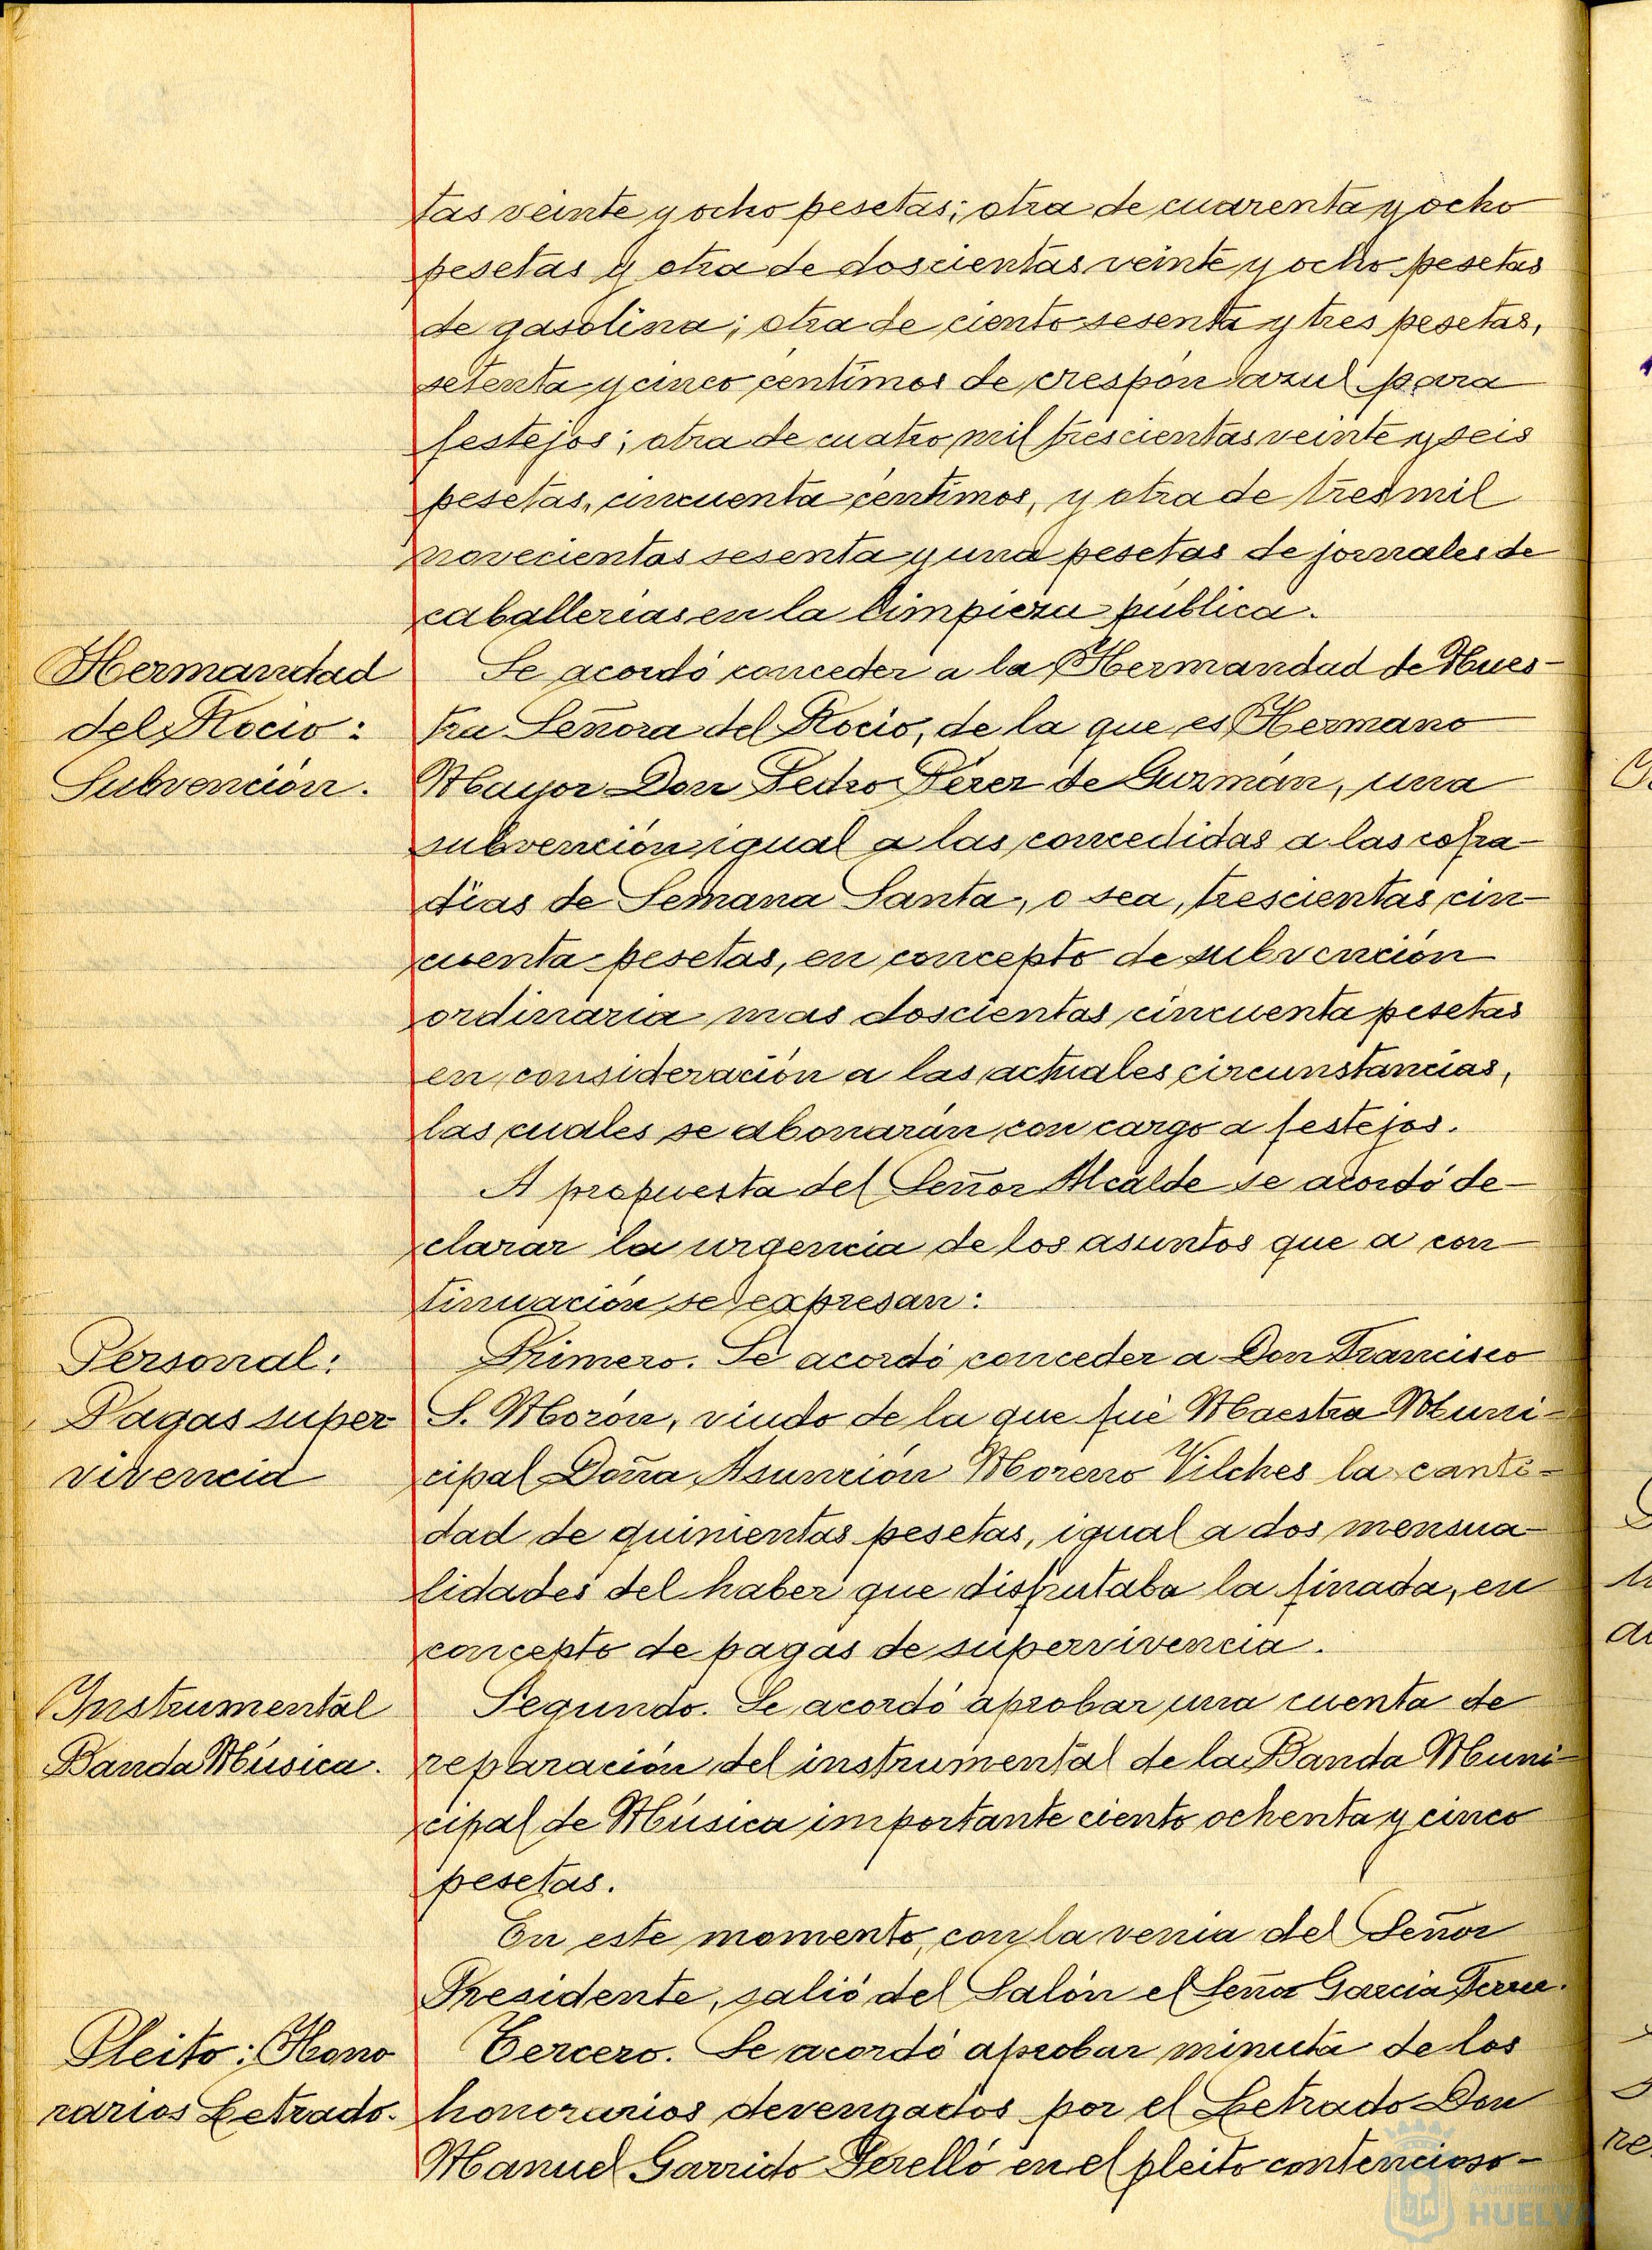 tas veinte y ocho pesetas; otra de cuarenta y ocho
pesetas y otra de doscientas veinte y ocho pesetas
de gasolina; otra de ciento sesenta y tres pesetas,
setenta y cinco centimos de crespón azul para
festejos; otra de cuatro mil trescientas veinte y seis
pesetas, cincuenta centimos, y otra de tres mil
novecientas sesenta y una pesetas de jornales de
caballerias en la limpieza pública.
Hermandad
del Rocio:
Subvención.
Se acordó conceder a la Hermandad de Nues-
tra Señora del Rocio, de la que es Hermano
Mayor Don Pedro Pérez de Guzmán, una
subvención igual a las concedidas a las cofra-
dias de Semana Santa, o sea, trescientas cin-
cuenta pesetas, en concepto de subvención
ordinaria mas doscientas cincuenta pesetas
en consideración a las actuales circunstancias,
las cuales se abonarán con cargo a festejos.
A propuesta del Señor Alcalde se acordó de-
clarar la urgencia de los asuntos que a con-
tinuación se expresan:
Personal:
Pagas super
vivencia
Primero. Se acordó conceder a Don Francisco
S. Morón, viudo de la que fué Maestra Muni-
cipal Doña Asunción Moreno Vilches la canti-
dad de quinientas pesetas, igual a dos mensua-
lidades del haber que disfrutaba la finada, en
concepto de pagas de supervivencia.
Instrumental
Banda Música.
Segundo. Se acordó aprobar una cuenta de
reparación del instrumental de la Banda Muni-
cipal de Música importante ciento ochenta y cinco
pesetas.
En este momento, con la venia del Señor
Presidente, salió del Salón el Señor Garcia
Pleito: Hono
rarios Letrado.
Tercero. Se acordó aprobar minuta de los
honorarios devengados por el Letrado Don
Manuel Garrido Perelló en el pleito contencioso-
Ayuntamiento
HUELVA